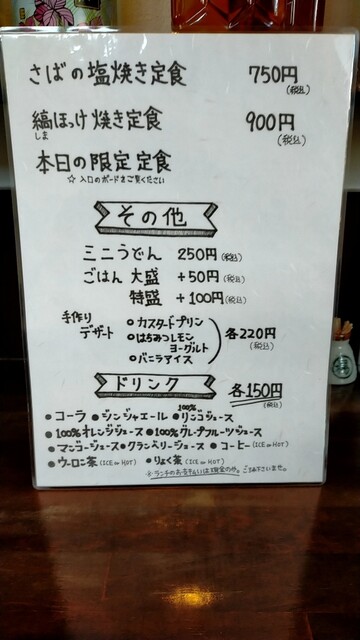 さばの塩焼き定食 750円
(税込)
縞ほっけ焼き定食 900円
しま (税込)
本日の限定定食
☆入口のボードをご覧ください
その他
ミニうどん 250円(税込)
ごはん 大盛 +50円(税込)
特盛 +100円(税込)
手作りデザート
・カスタードプリン
・はちみつレモンヨーグルト
・バニラアイス
各220円
(税込)
ドリンク 各150円
(税込)
・コーラ ・ジンジャエール ・100%リンゴジュース
・100%オレンジジュース ・100%グレープフルーツジュース
・マンゴージュース ・クランベリージュース ・コーヒー(ICE or HOT)
・ウーロン茶(ICE or HOT) ・りょく茶(ICE or HOT)